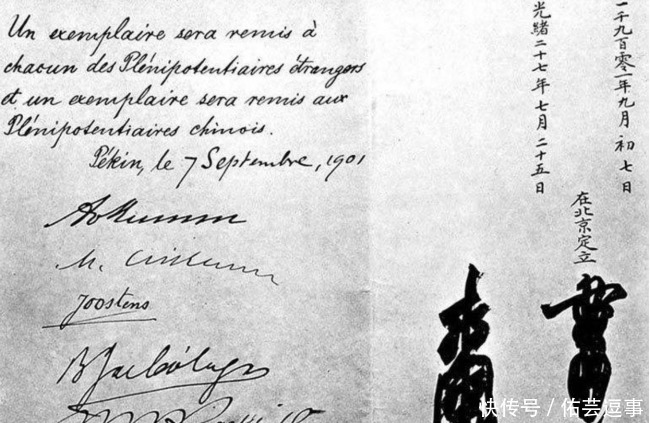 Un exemplaire sera remis à
chacun des Plénipotentiaires étrangers
et un exemplaire sera remis aux
Plénipotentiaires chinois.
Pékin, le 7 Septembre, 1901
Joostens
一千九百零一年九月初七日
在北京定立
光緒二十七年七月二十五日
快传号 / 佑芸逗事